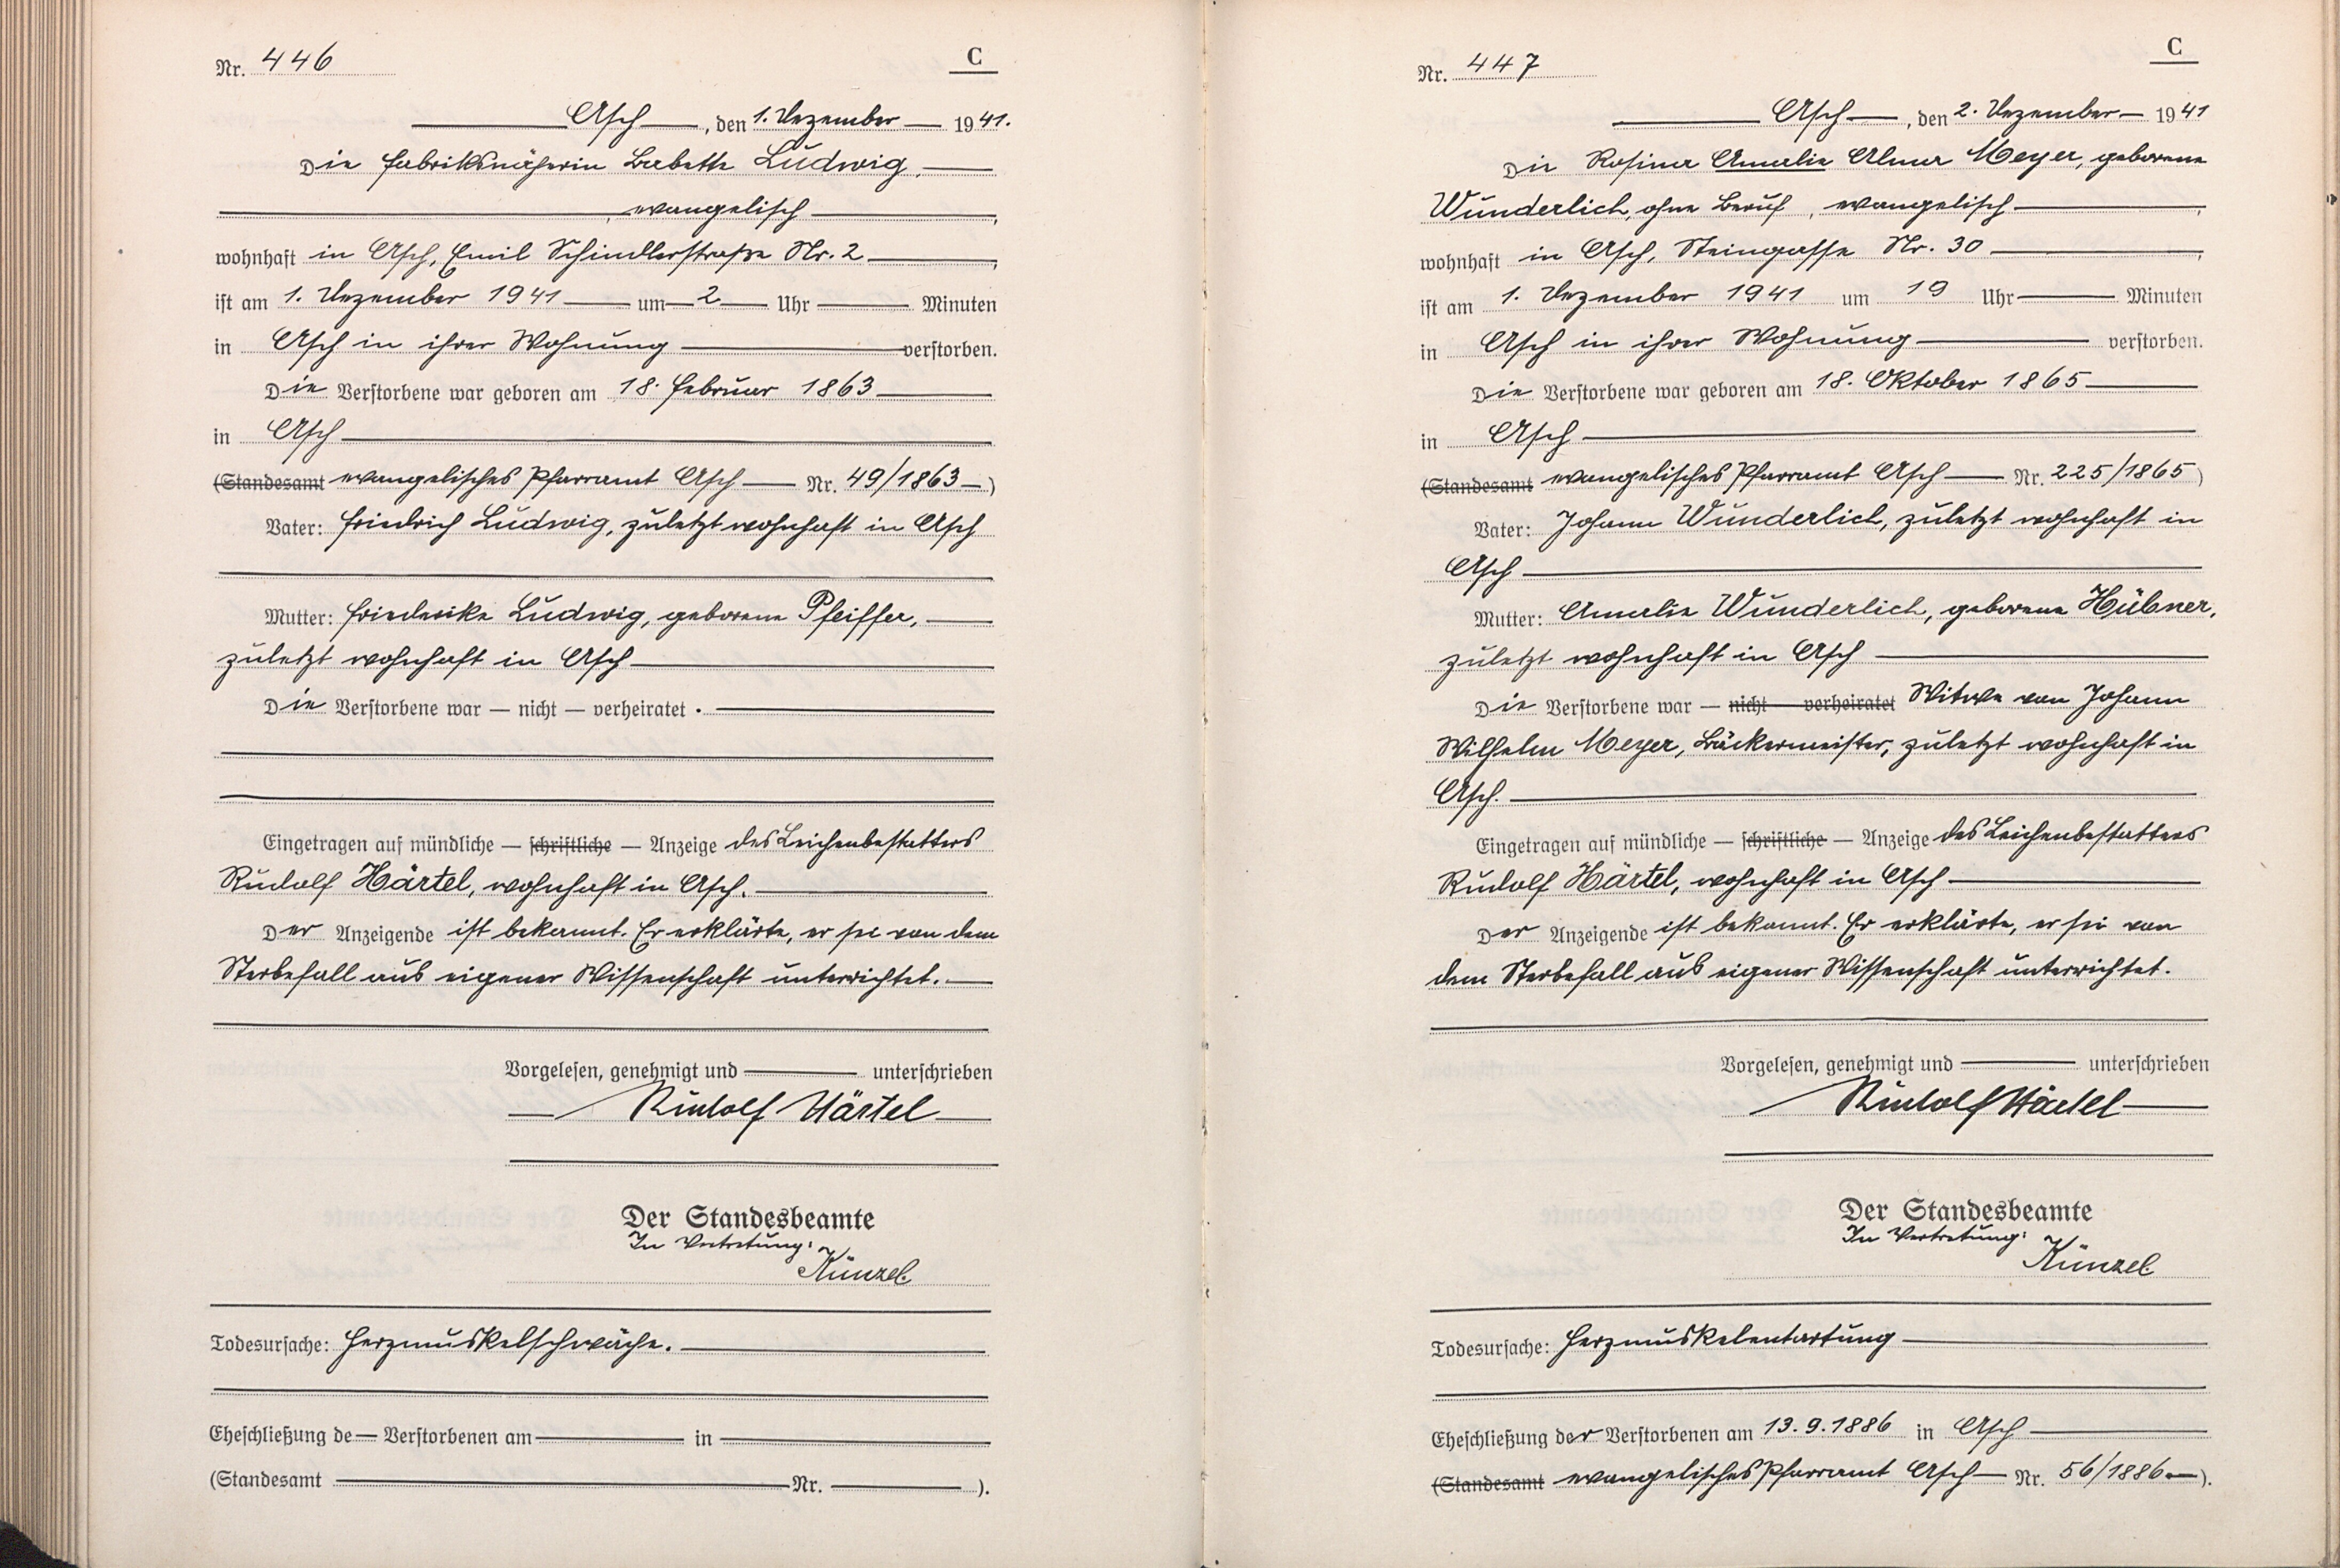 Nr. 446
C
Asch, den 1. Dezember 1941.
Die Fabriksnäherin Babette Ludwig,
evangelisch,
wohnhaft in Asch, Emil Schindlerstraße Nr. 2,
ist am 1. Dezember 1941 um 2 Uhr Minuten
in Asch in ihrer Wohnung verstorben.
Die Verstorbene war geboren am 18. Februar 1863
in Asch
(Standesamt evangelisches Pfarramt Asch Nr. 49/1863)
Vater: Friedrich Ludwig, zuletzt wohnhaft in Asch
Mutter: Friederike Ludwig, geborene Pfeiffer,
zuletzt wohnhaft in Asch
Die Verstorbene war — nicht — verheiratet.
Eingetragen auf mündliche — schriftliche — Anzeige des Leichenbestatters
Rudolf Härtel, wohnhaft in Asch.
Der Anzeigende ist bekannt. Er erklärte, er sei von dem
Sterbefall aus eigener Wissenschaft unterrichtet.
Vorgelesen, genehmigt und unterschrieben
Rudolf Härtel
Der Standesbeamte
In Vertretung:
Künzel.
Todesursache: Herzmuskelschwäche.
Eheschließung de Verstorbenen am in
(Standesamt Nr. ).
Nr. 447
C
Asch, den 2. Dezember 1941
Die Rosina Amalie Alma Meyer, geborene
Wunderlich, ohne Beruf, evangelisch,
wohnhaft in Asch, Steingasse Nr. 30,
ist am 1. Dezember 1941 um 19 Uhr Minuten
in Asch in ihrer Wohnung verstorben.
Die Verstorbene war geboren am 18. Oktober 1865
in Asch
(Standesamt evangelisches Pfarramt Asch Nr. 225/1865)
Vater: Johann Wunderlich, zuletzt wohnhaft in
Asch
Mutter: Amalie Wunderlich, geborene Hübner,
zuletzt wohnhaft in Asch
Die Verstorbene war — nicht — verheiratet Witwe von Johann
Wilhelm Meyer, Bäckermeister, zuletzt wohnhaft in
Asch.
Eingetragen auf mündliche — schriftliche — Anzeige des Leichenbestatters
Rudolf Härtel, wohnhaft in Asch
Der Anzeigende ist bekannt. Er erklärte, er sei von
dem Sterbefall aus eigener Wissenschaft unterrichtet.
Vorgelesen, genehmigt und unterschrieben
Rudolf Härtel
Der Standesbeamte
In Vertretung:
Künzel.
Todesursache: Herzmuskelentartung
Eheschließung der Verstorbenen am 13.9.1886 in Asch
(Standesamt evangelisches Pfarramt Asch Nr. 56/1886).